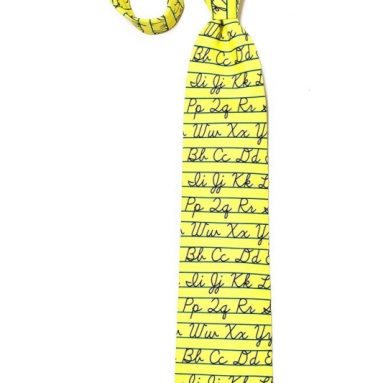 Bb Cc Dd
Ii Jj Kk L
Pp Qq Rr
Ww Xx Y
Bb Cc Dd
Ii Jj Kk L
Pp Qq Rr
Ww Xx Yy
Bb Cc Dd
Ii Jj Kk L
Pp Qq Rr
Ww Xx Yy
Bb Cc Dd E